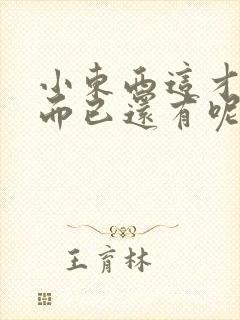 小東西這才
而已還有呢
王育林